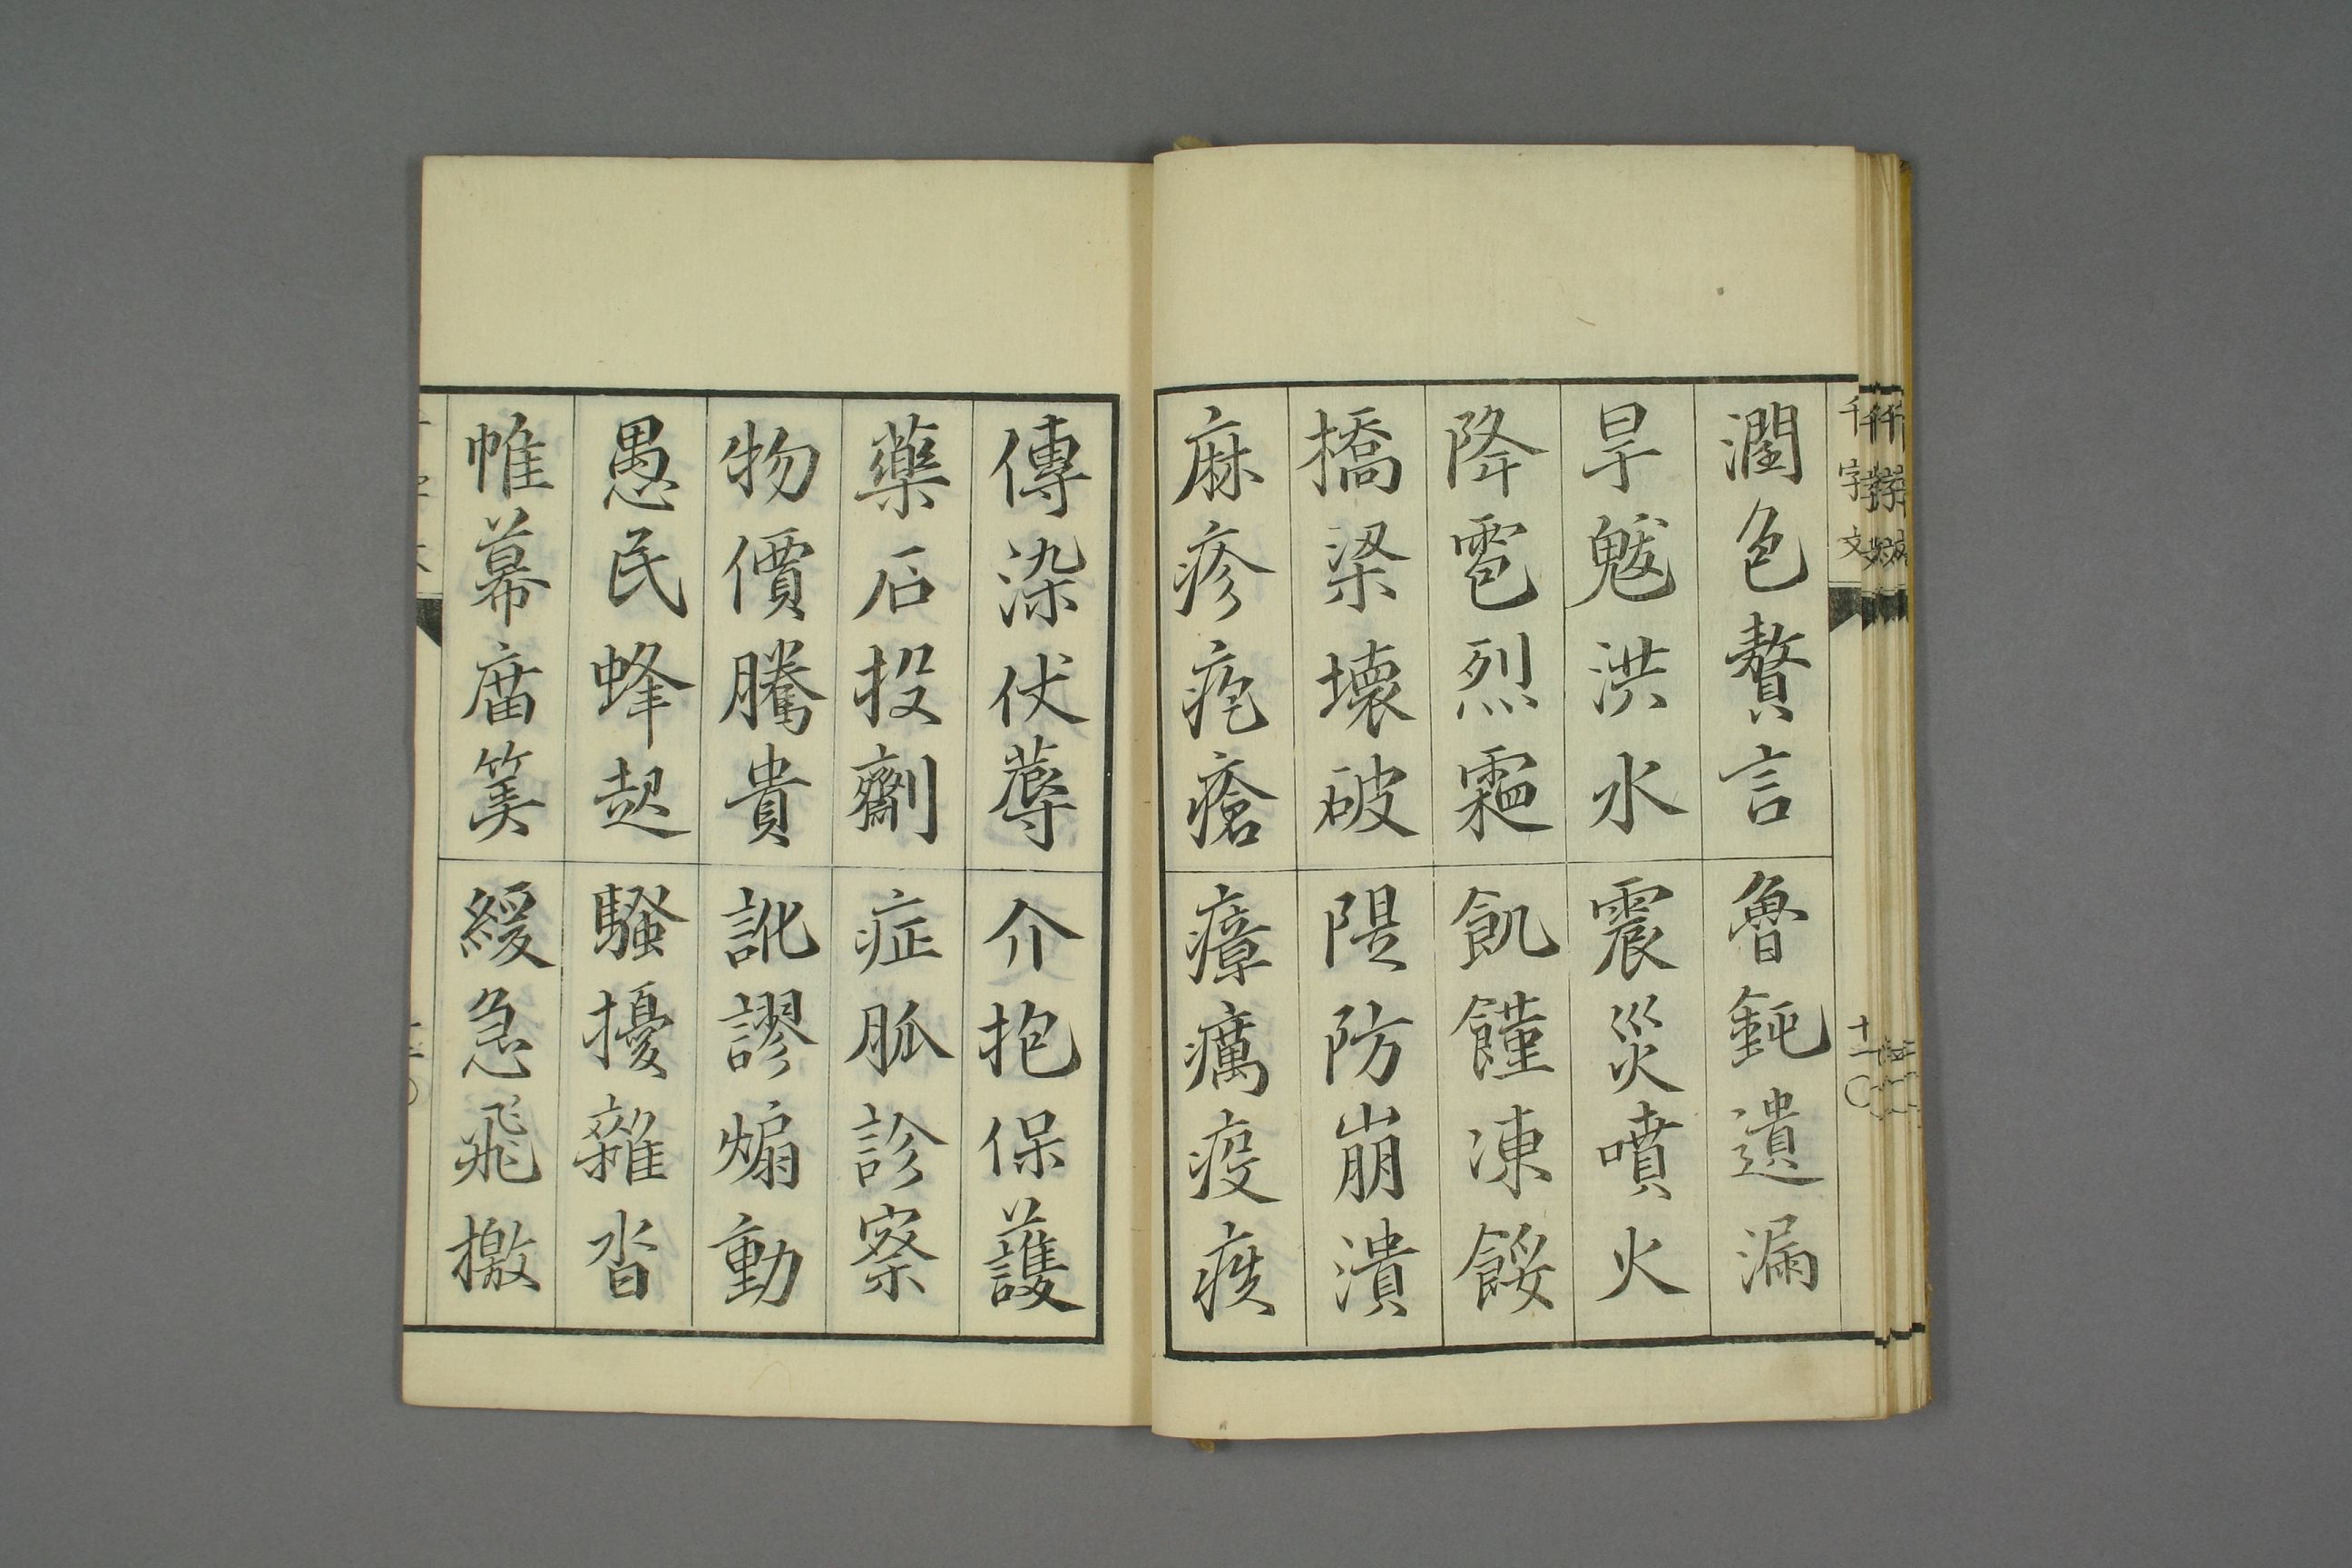 千字文
十一
潤色贅言 魯鈍遺漏
旱魃洪水 震災噴火
降雹烈霜 飢饉凍餒
橋梁壊破 隄防崩潰
麻疹疱瘡 瘴癘疫疾
傳染伏蓐 介抱保護
藥石投劑 症脈診察
物價騰貴 訛謬煽動
愚民蜂起 騷擾雜沓
帷幕廟筭 緩急飛檄